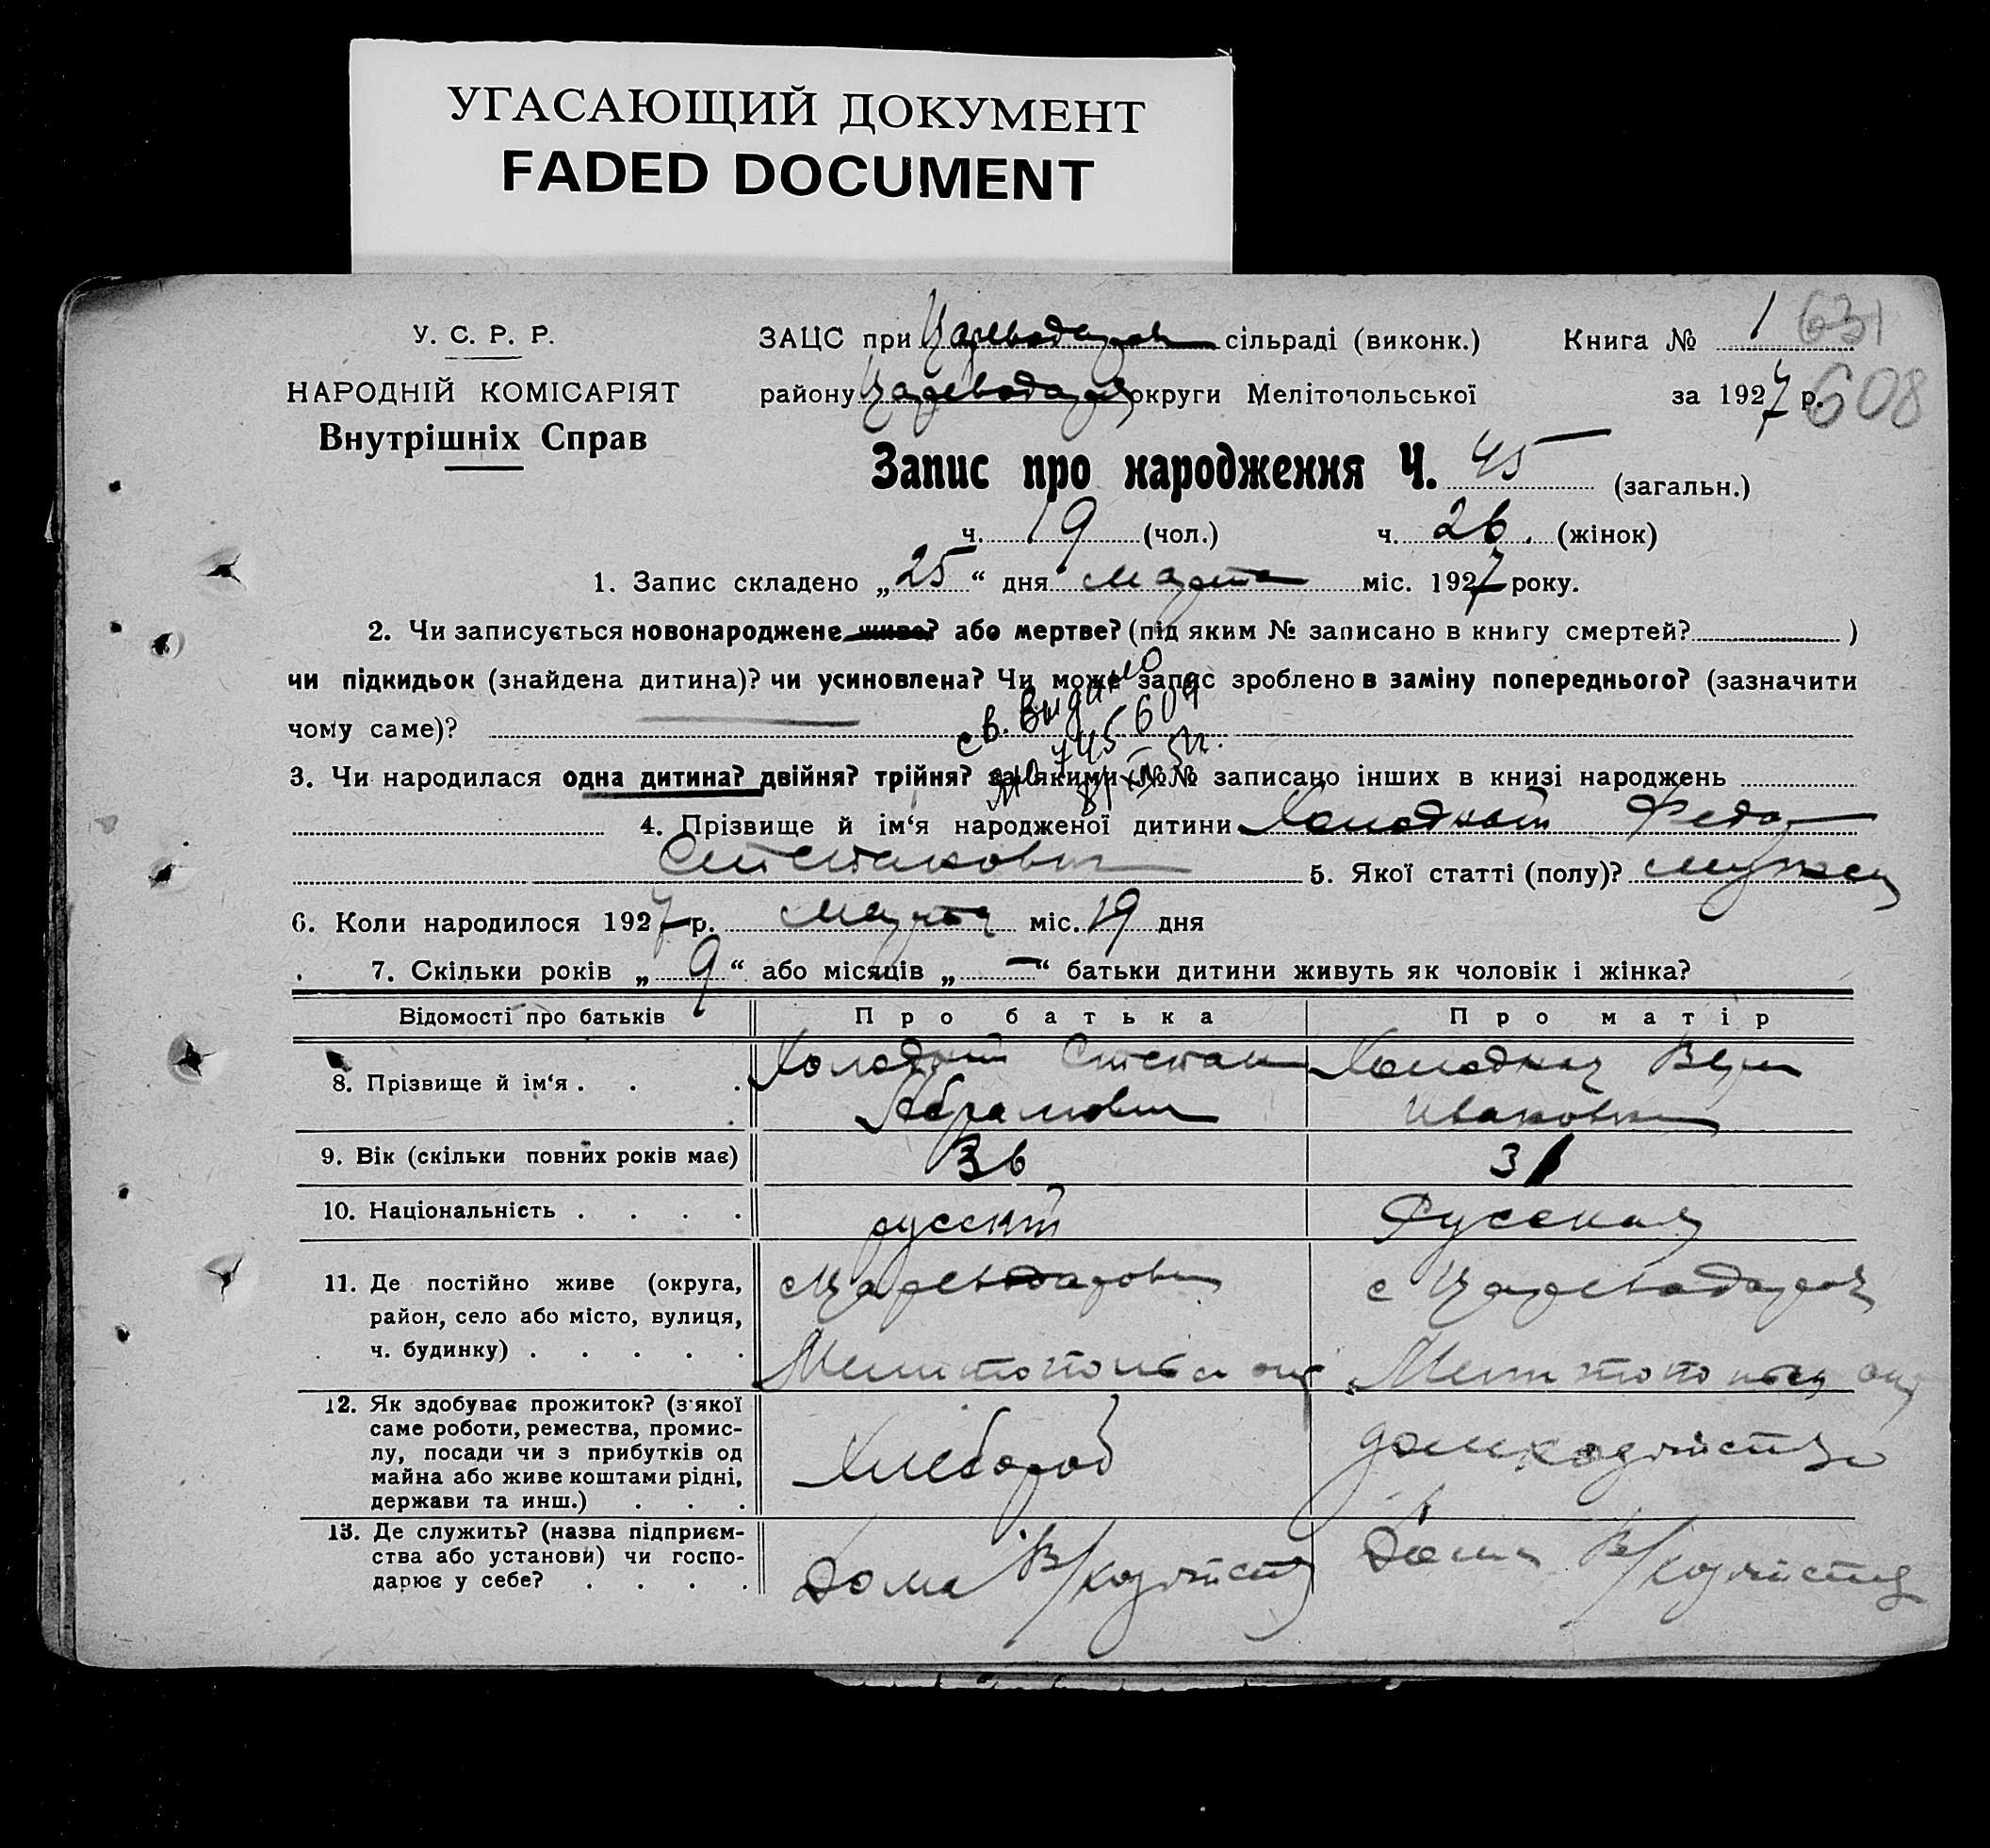 УГАСАЮЩИЙ ДОКУМЕНТ
FADED DOCUMENT
У. С. Р. Р.
НАРОДНІЙ КОМІСАРІЯТ
Внутрішніх Справ
ЗАЦС при сільраді (виконк.) Книга № 1 631
району округи Мелітопольської за 1927 р. 608
Запис про народження Ч. 45 (загальн.)
ч. 19 (чол.) ч. 26. (жінок)
1. Запис складено „25“ дня марта міс. 1927 року.
2. Чи записується новонароджене живе? або мертве? (під яким № записано в книгу смертей? )
чи підкидьок (знайдена дитина)? чи усиновлена? Чи може запис зроблено в заміну попереднього? (зазначити
чому саме)?
св. выдано
3. Чи народилася одна дитина? двійня? трійня? за якими №№ записано інших в книзі народжень
4. Прізвище й ім‘я народженої дитини Холодный Федор
Степанович 5. Якої статті (полу)? мужск
6. Коли народилося 1927 р. марта міс. 19 дня
7. Скільки років „9“ або місяців „—“ батьки дитини живуть як чоловік і жінка?
Відомості про батьків Про батька Про матір
8. Прізвище й ім‘я . . . Холодный Степан Холодная Вера
Абрамович Ивановна
9. Вік (скільки повних років має) 36 31
10. Національність . . . . русский Русская
11. Де постійно живе (округа, с
район, село або місто, вулиця,
ч. будинку) . . . . . Мелитопольск окр Мелитопольск окр
12. Як здобуває прожиток? (з якої
саме роботи, ремества, промис-
лу, посади чи з прибутків од
майна або живе коштами рідні,
держави та инш.) . . . Хлебороб домхозяйство
13. Де служить? (назва підприєм-
ства або установи) чи госпо-
дарює у себе? . . . . Дома В/хозяйств Дома В/хозяйстве